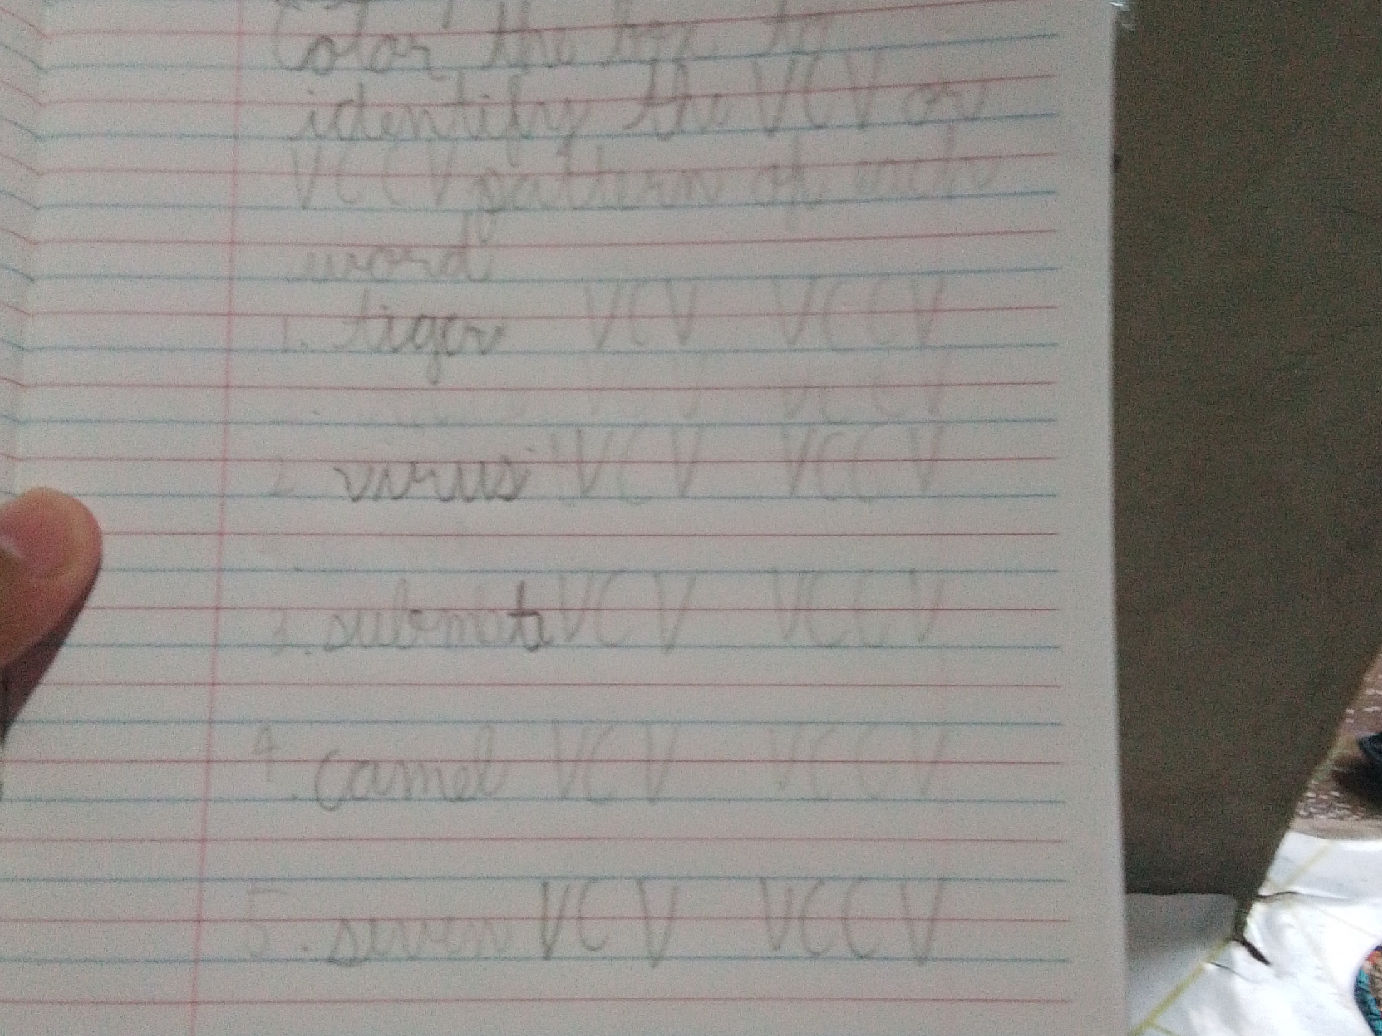 Color the box to
identify the VCV or
VCCV pattern of each
word
1. tiger VCV VCCV
VCV VCCV
2. virus VCV VCCV
3. VCV VCCV
4. camel VCV VCCV
5. seven VCV VCCV